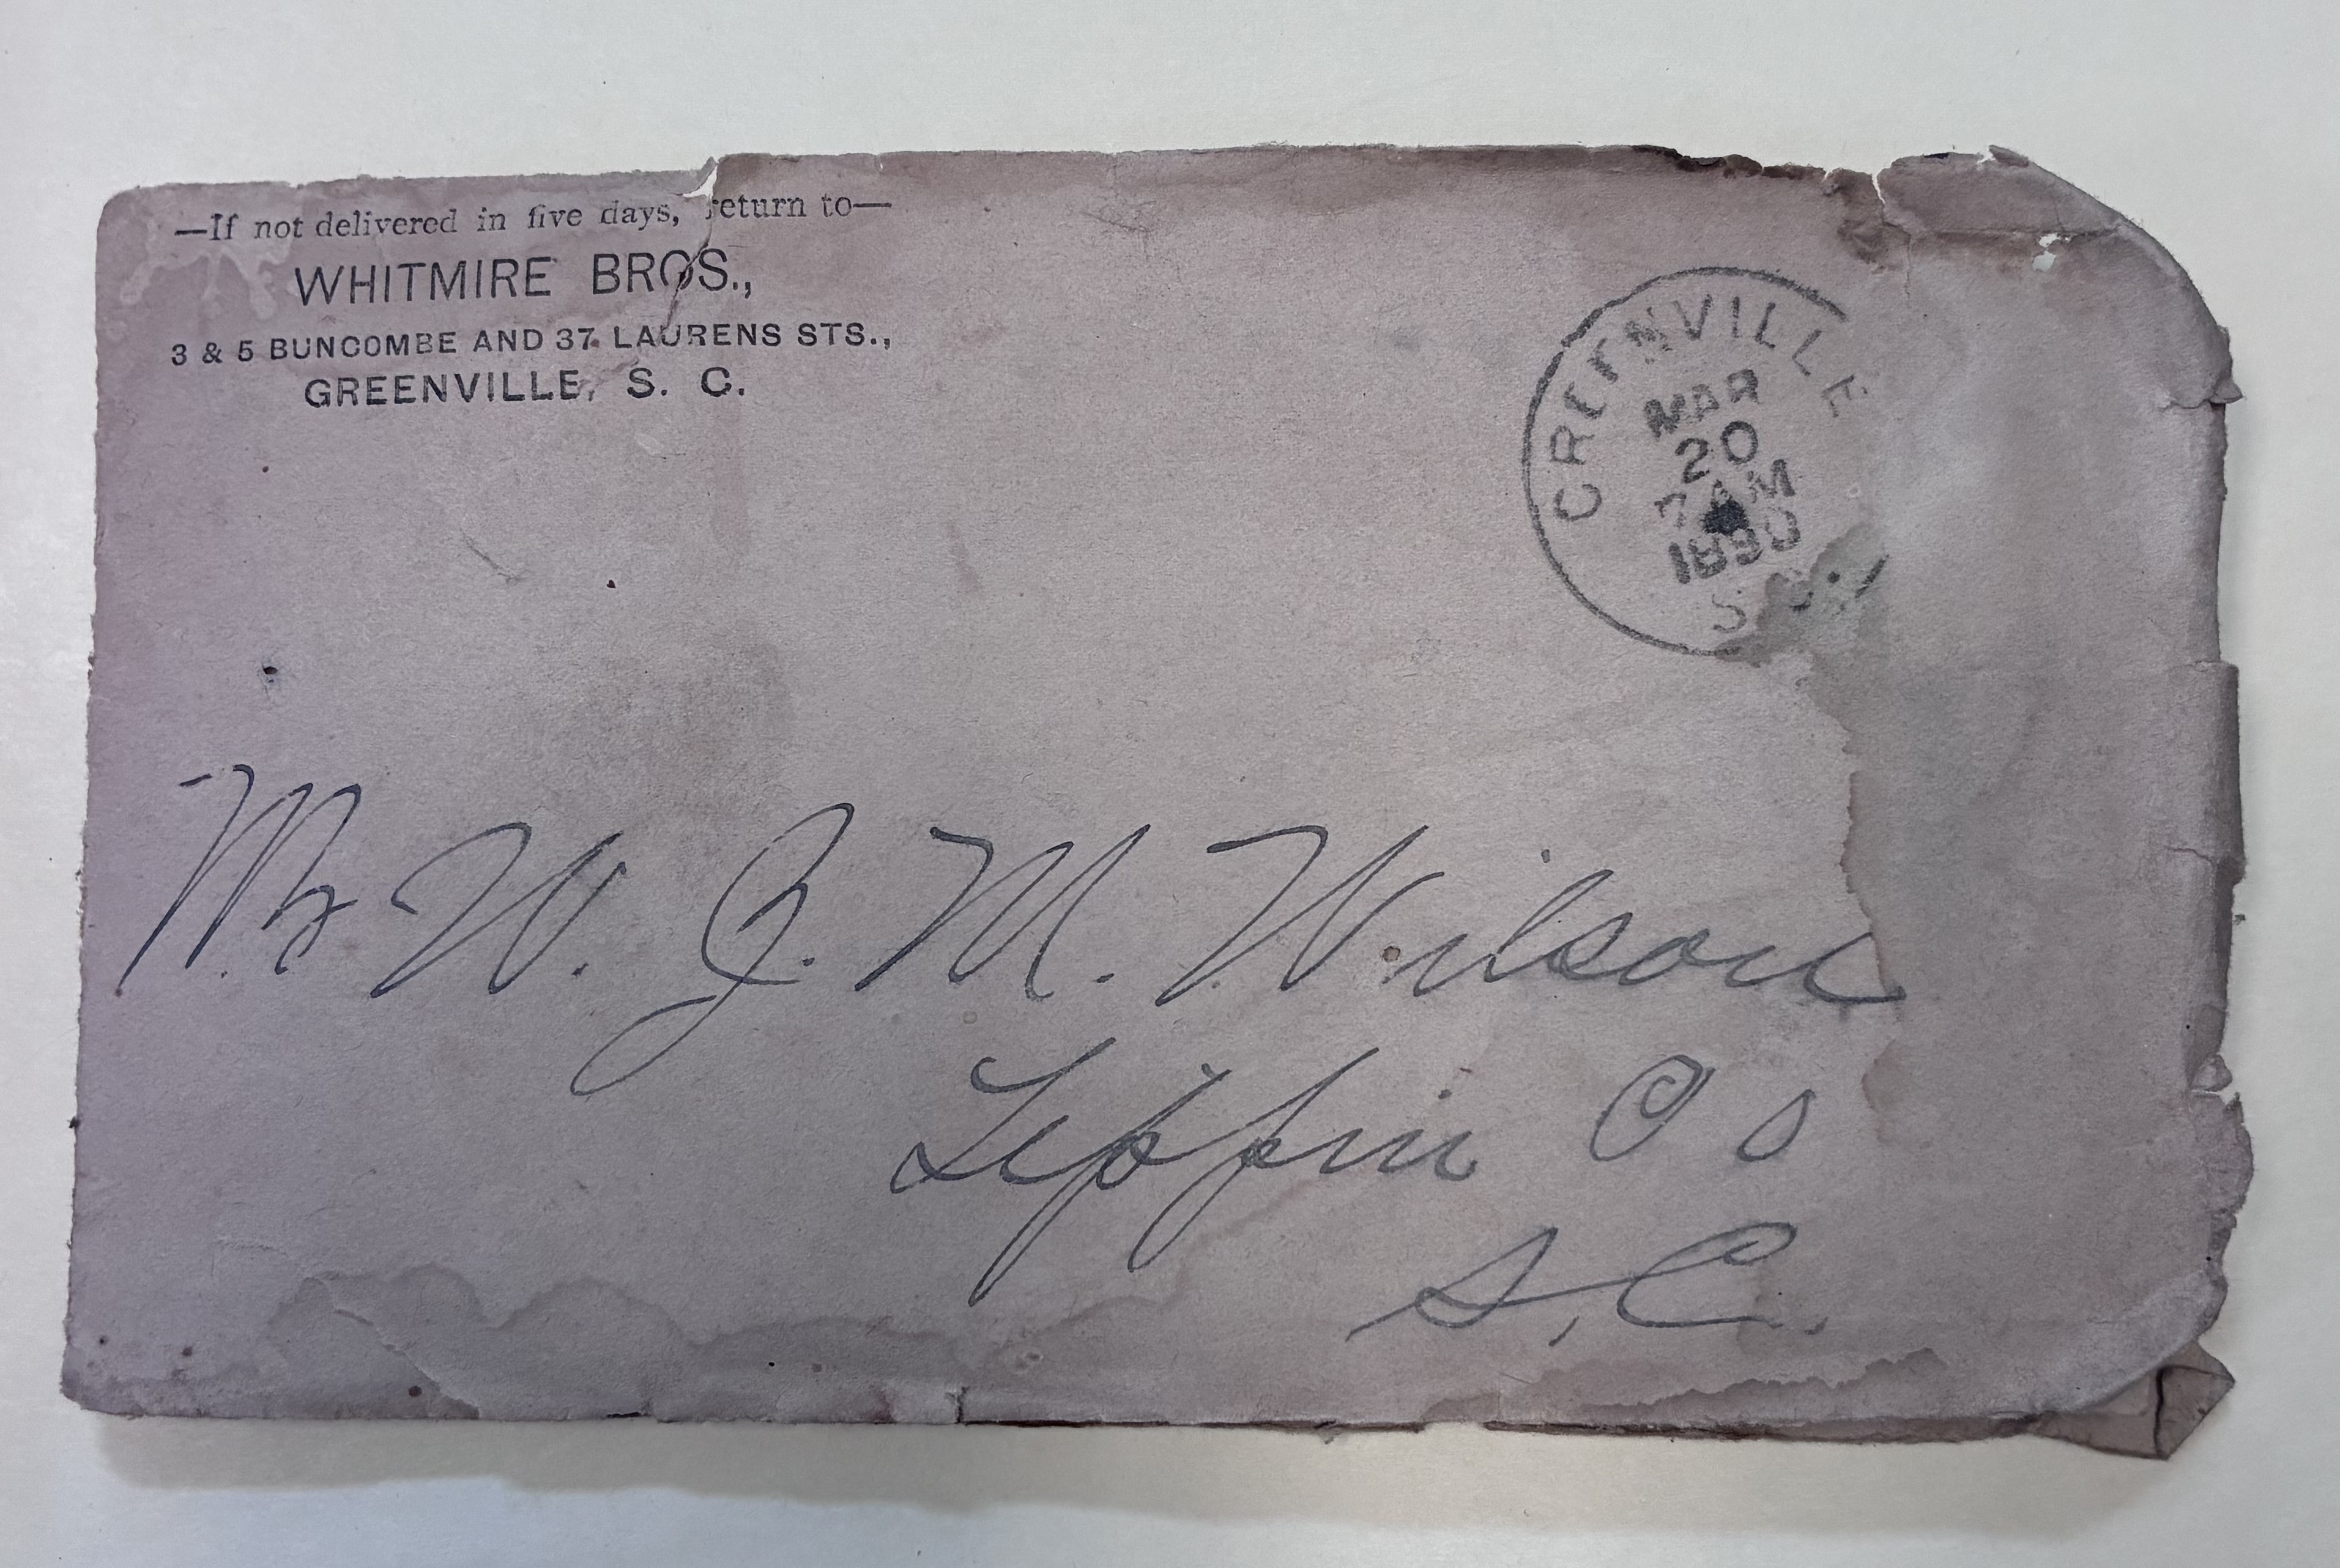 —If not delivered in five days, return to—
WHITMIRE BROS.,
3 & 5 BUNCOMBE AND 37 LAURENS STS.,
GREENVILLE, S. C.
GREENVILLE
MAR
20
7 AM
1890
S
Mr W. J. M. Wilson
S.C.